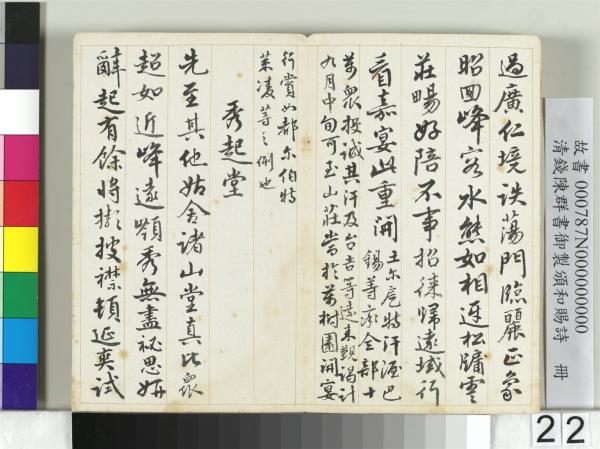 過廣仁境詄蕩門臨麗正每
昭回峰容水態如相迓松牖雲
莊暢好陪不事招徠歸遠域行
看嘉宴此重開土尔扈特汗渥巴
錫等率全部十
萬眾投誠其汗及台吉等遠來覲謁計
九月中旬可至山莊當於萬樹園開宴
行賞如都尔伯特
策凌等之例也
秀起堂
先至其他姑舍諸山堂真比眾
超如近峰遠嶺秀無盡祕思妍
辭起有餘將擷披襟頓延爽試
故書 000787N000000000
清錢陳群書御製賡和賜詩 冊
22